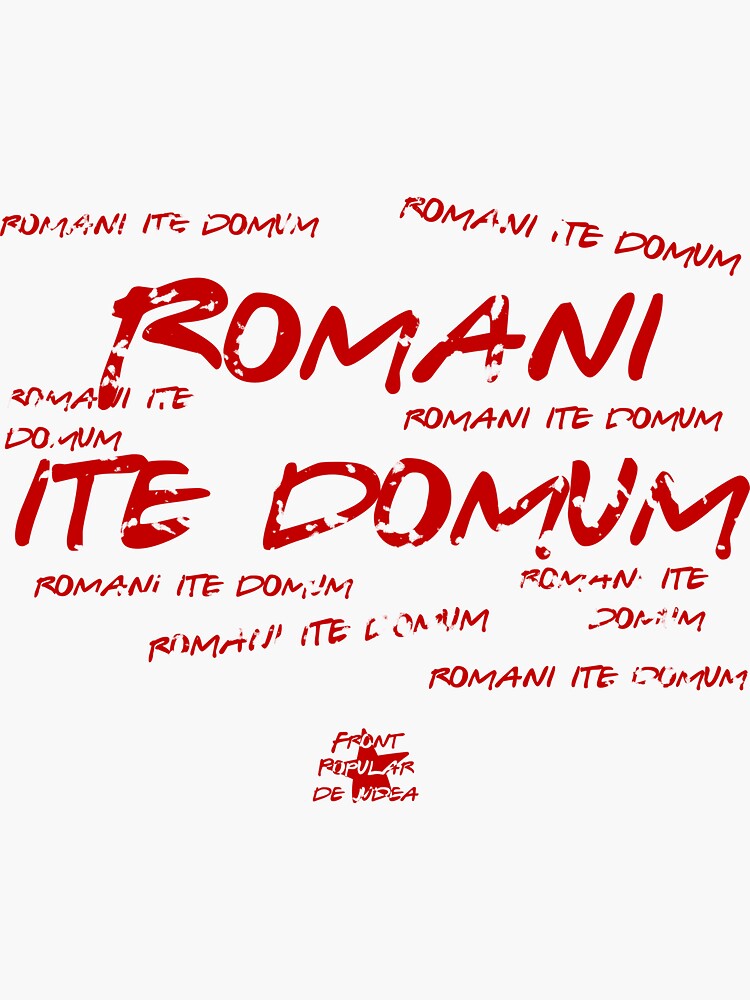 ROMANI ITE DOMUM
ROMANI ITE DOMUM
ROMANI
ROMANI ITE
DOMUM
ROMANI ITE DOMUM
ITE DOMUM
ROMANI ITE DOMUM
ROMANI ITE
DOMUM
ROMANI ITE DOMUM
ROMANI ITE DOMUM
FRONT
POPULAR
DE JUDEA